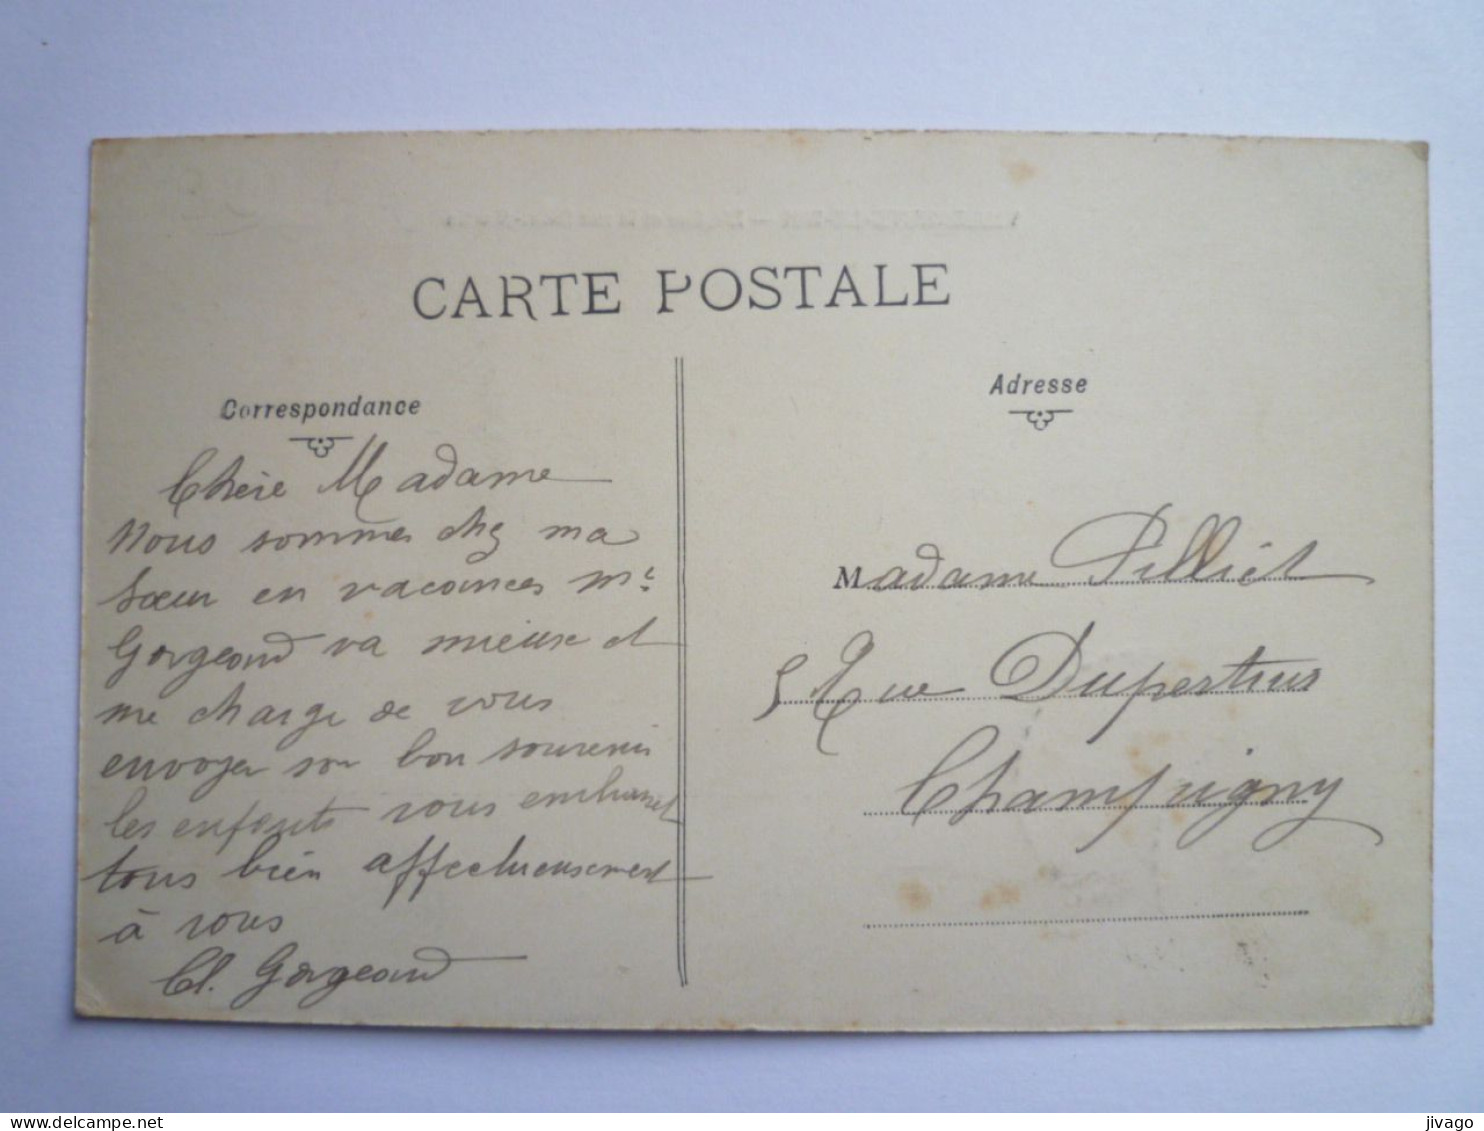 CARTE POSTALE
Correspondance
Chère Madame
Nous sommes chez ma
sœur en vacances Mr
Gorgeard va mieuse et
me charge de vous
envoyer son bon souvenir
les enfants vous embrasset
tous bien affectueusement
à vous
Cl. Gorgeard
Adresse
Madame Pilliet
5 Rue Dupertuis
Champigny
jivago